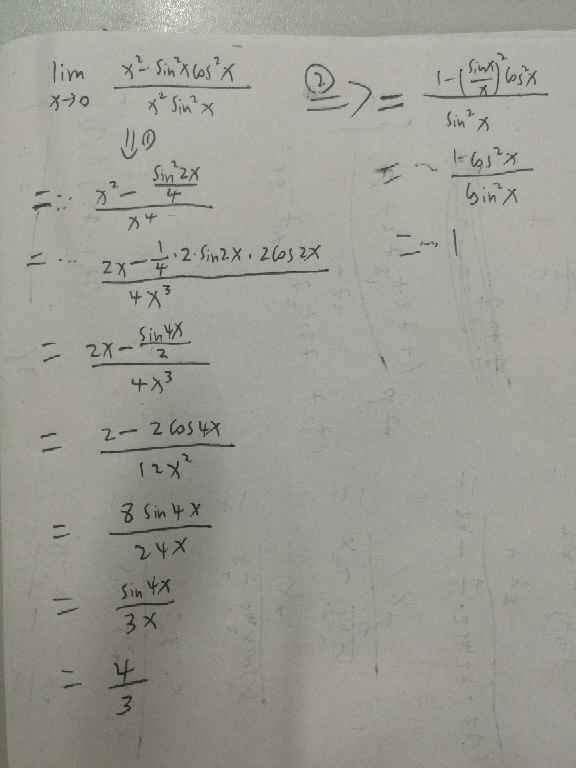 lim x→0 (x² - sin²x cos²x)/(x² sin²x)
⇓ ①
= (x² - sin²2x/4)/x⁴
= (2x - 1/4 · 2 · sin2x · 2cos2x)/(4x³)
= (2x - sin4x/2)/(4x³)
= (2 - 2cos4x)/(12x²)
= 8 sin4x/(24x)
= sin4x/(3x)
= 4/3
② ⇒ = (1 - (sinx/x)² cos²x)/(sin²x)
= (1 - cos²x)/(sin²x)
= 1